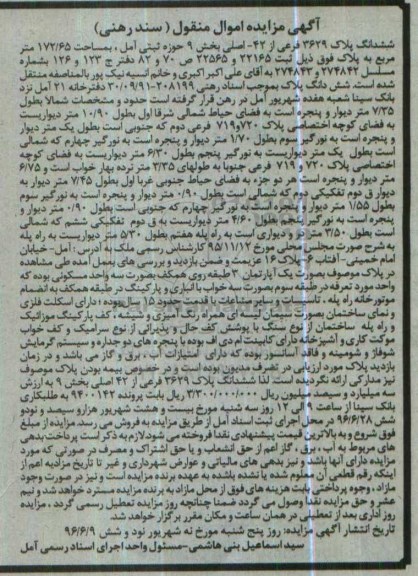 آگهی مزایده اموال منقول ( سند رهنی )
ششدانگ پلاک ۳۶۲۹ فرعی از ۴۲- اصلی بخش ۹ حوزه ثبتی آمل ، بمساحت ۱۷۲/۶۵ متر
مربع به پلاک فوق ذیل ثبت ۲۲۱۶۵ و ۲۲۵۶۵ ص ۷۰ و ۸۲ دفتر ج ۱۲۳ و ۱۲۶ بشماره
مسلسل ۲۷۴۸۴۲ و ۲۷۴۸۴۳ به آقای علی اکبر اکبری و خانم انسیه نیک پور بالمناصفه منتقل
شده است. شش دانگ پلاک بموجب اسناد رهنی ۲۰۸۱۹۹-۳۰/۰۹/۹۱ دفترخانه ۲۱ آمل نزد
بانک سینا شعبه هفده شهریور آمل در رهن قرار گرفته است حدود و مشخصات شمالا بطول
۷/۳۵ متر دیوار و پنجره است به فضای حیاط شمالی شرقا اول بطول ۱۰/۹۰ متر دیواریست
به فضای کوچه اختصاصی پلاک ۷۲۰و۷۱۹ فرعی دوم که جنوبی است بطول یک متر دیوار
و پنجره است به نورگیر سوم بطول ۱/۷۰ متر دیوار و پنجره است به نورگیر چهارم که شمالی
است بطول یک متر دیواریست به نورگیر پنجم بطول ۶/۳۰ متر دیواریست به فضای کوچه
اختصاصی پلاک ۷۲۰ و ۷۱۹ فرعی جنوبا به طولهای ۳/۳۵ متر نرده بهار خواب است و ۶/۷۵
متر دیوار و پنجره است در دو جزء به فضای حیاط جنوبی غربا اول بطول ۷/۴۵ متر دیوار به
دیوار ق دوم تفکیکی دوم که شمالی است بطول ۰/۹۰ متر دیوار و پنجره است به نورگیر سوم
بطول ۱/۵۵ متر دیوار و پنجره است به نورگیر چهارم که جنوبی است بطول ۰/۹۰ متر دیوار و
پنجره است به نورگیر پنجم بطول ۴/۶۰ متر دیواریست به ق دوم تفکیکی ششم که شمالی
است بطول ۳/۵۰ متر در و دیواری است به راه پله هفتم بطول ۵/۳۰ متر دیواریست به راه پله
به شرح صورت مجلس محلی مورخ ۹۵/۱۱/۱۲ کارشناس رسمی ملک به آدرس : آمل- خیابان
امام خمینی- آفتاب ۶- پلاک ۱۶ عزیمت و ضمن بازدید و بررسی های بعمل آمده طی مشاهده
در پلاک موصوف بصورت یک آپارتمان ۳ طبقه روی همکف بصورت سه واحد مسکونی بوده که
واحد مورد تعرفه در طبقه سوم بصورت سه خواب با انباری و پارکینگ در طبقه همکف به انضمام
موتورخانه راه پله ، تاسیسات و سایر مشاعات با قدمت حدود ۱۵ سال بوده ؛ دارای اسکلت فلزی
و نمای ساختمان بصورت سیمان لیسه ای همراه رنگ آمیزی و شیشه ، کف پارکینگ موزائیک
و راه پله ساختمان از نوع سنگ با پوشش کف حال و پذیرائی از نوع سرامیک و کف خواب
موکت کاری و آشپزخانه دارای کابینت ام دی اف بوده با پنجره های دو جداره و سیستم گرمایش
شوفاژ و شومینه و فاقد آسانسور بوده که دارای امتیازات آب ، برق و گاز می باشد و در زمان
بازدید پلاک مورد ارزیابی در تصرف مدیون بوده است و در خصوص بیمه بودن پلاک موصوف
نیز مدارکی ارائه نگردیده است. لذا ششدانگ پلاک ۳۶۲۹ فرعی از ۴۲ اصلی بخش ۹ به ارزش
سه میلیارد و سیصد میلیون ریال ۳/۳۰۰/۰۰۰/۰۰۰ ریال بابت پرونده ۹۴۰۰۱۴۲ به طلبکاری
بانک سینا از ساعت ۹ الی ۱۲ روز سه شنبه مورخ بیست و هشت شهریور هزار و سیصد و نود و
شش ۹۶/۶/۲۸ در محل اجرای ثبت اسناد آمل از طریق مزایده به فروش می رسد. مزایده از مبلغ
فوق شروع و به بالاترین قیمت پیشنهادی نقدا فروخته می شود. لازم به ذکر است پرداخت بدهی
های مربوط به آب ، برق ، گاز اعم از حق انشعاب و یا حق اشتراک و مصرف در صورتی که مورد
مزایده دارای آنها باشد و نیز بدهی های مالیاتی و عوارض شهرداری و غیر تا تاریخ مزایده اعم از
اینکه رقم قطعی آن معلوم شده یا نشده باشد به عهده برنده مزایده است و نیز در صورت وجود
مازاد ، وجوه پرداختی بابت هزینه های فوق از محل مازاد به برنده مزایده مسترد خواهد شد و نیم
عشر و حق مزایده نقدا وصول می گردد ضمنا چنانچه روز مزایده تعطیل رسمی گردد ، مزایده
روز اداری بعد از تعطیلی در همان ساعت و مکان مقرر برگزار خواهد شد.
تاریخ انتشار آگهی مزایده: روز پنج شنبه مورخ نه شهریور نود و شش ۹۶/۶/۹
سید اسماعیل بنی هاشمی-مسئول واحد اجرای اسناد رسمی آمل